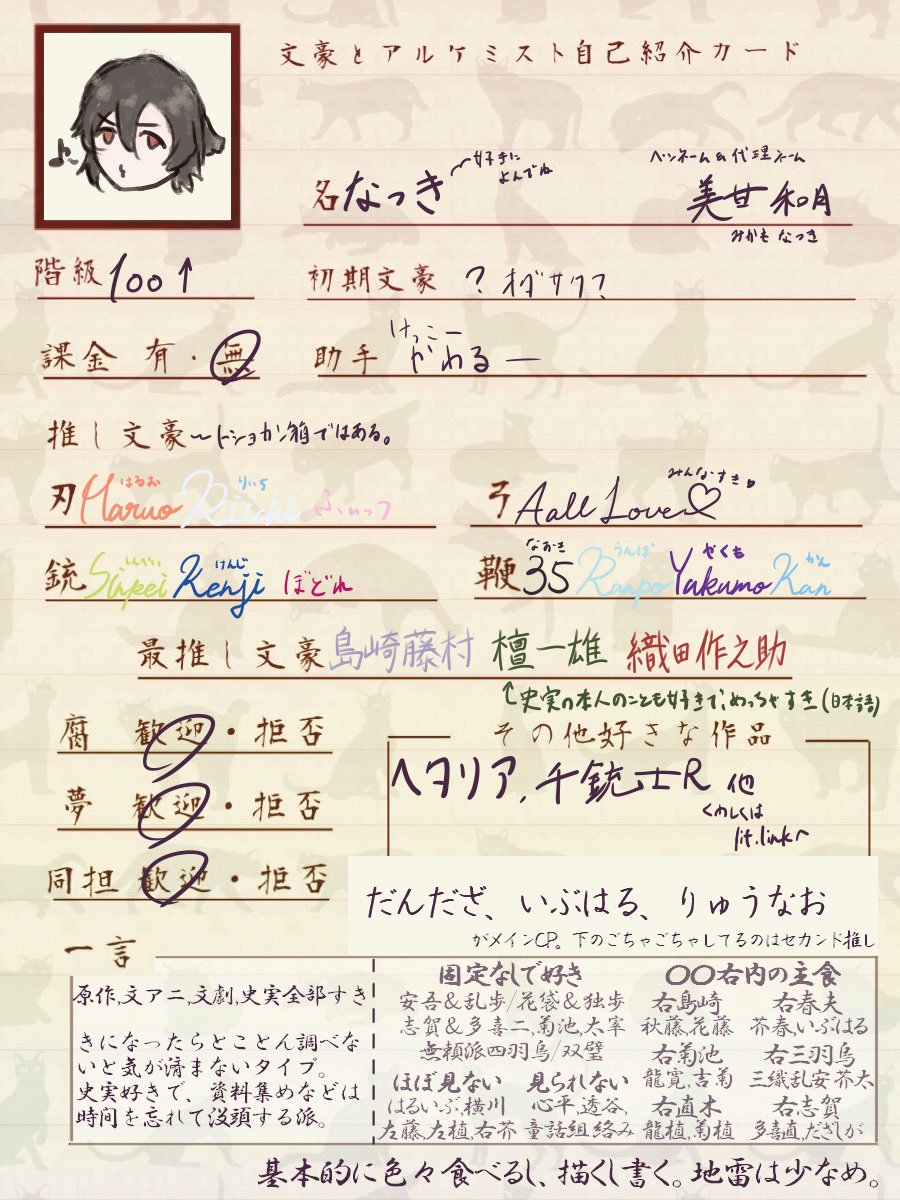 文豪とアルケミスト自己紹介カード
名 なつき
好きに
よんでね
ペンネーム&代理ネーム
美甘和月
みかも なつき
階級 100↑
初期文豪 ? オダサク?
課金 有・無
助手 けっこー
かわるー
推し文豪 〜トショカン箱ではある。
刃 Haruo はるお Riichi りいち ふぃっつ
弓 Aall Love♡ みんなすき
銃 Sinpei しんぺい Kenji けんじ ぼどれ
鞭 35 なおき Ranpo らんぽ Yakumo やくも Kan かん
最推し文豪 島崎藤村 檀一雄 織田作之助
↑史実の本人のことも好きで、めっちゃすき(日本語)
腐 歓迎・拒否
夢 歓迎・拒否
同担 歓迎・拒否
その他好きな作品
ヘタリア、千銃士R 他
くわしくは
lit.linkへ
だんだざ、いぶはる、りゅうなお
がメインCP。下のごちゃごちゃしてるのはセカンド推し
一言
原作,文アニ,文劇,史実全部すき
きになったらとことん調べな
いと気が済まないタイプ。
史実好きで、資料集めなどは
時間を忘れて没頭する派。
固定なしで好き
安吾&乱歩/花袋&独歩
志賀&多喜二,菊池,太宰
無頼派四羽烏/双璧
ほぼ見ない 見られない
はるいぶ,横川 心平,透谷,
左藤,左植,右芥 童話組絡み
〇〇右内の主食
右島崎 右春夫
秋藤,花藤 芥春,いぶはる
右菊池 右三羽烏
龍寛,吉菊 三織乱安芥太
右直木 右志賀
龍植,菊植 多喜直,だざしが
基本的に色々食べるし、描くし書く。地雷は少なめ。